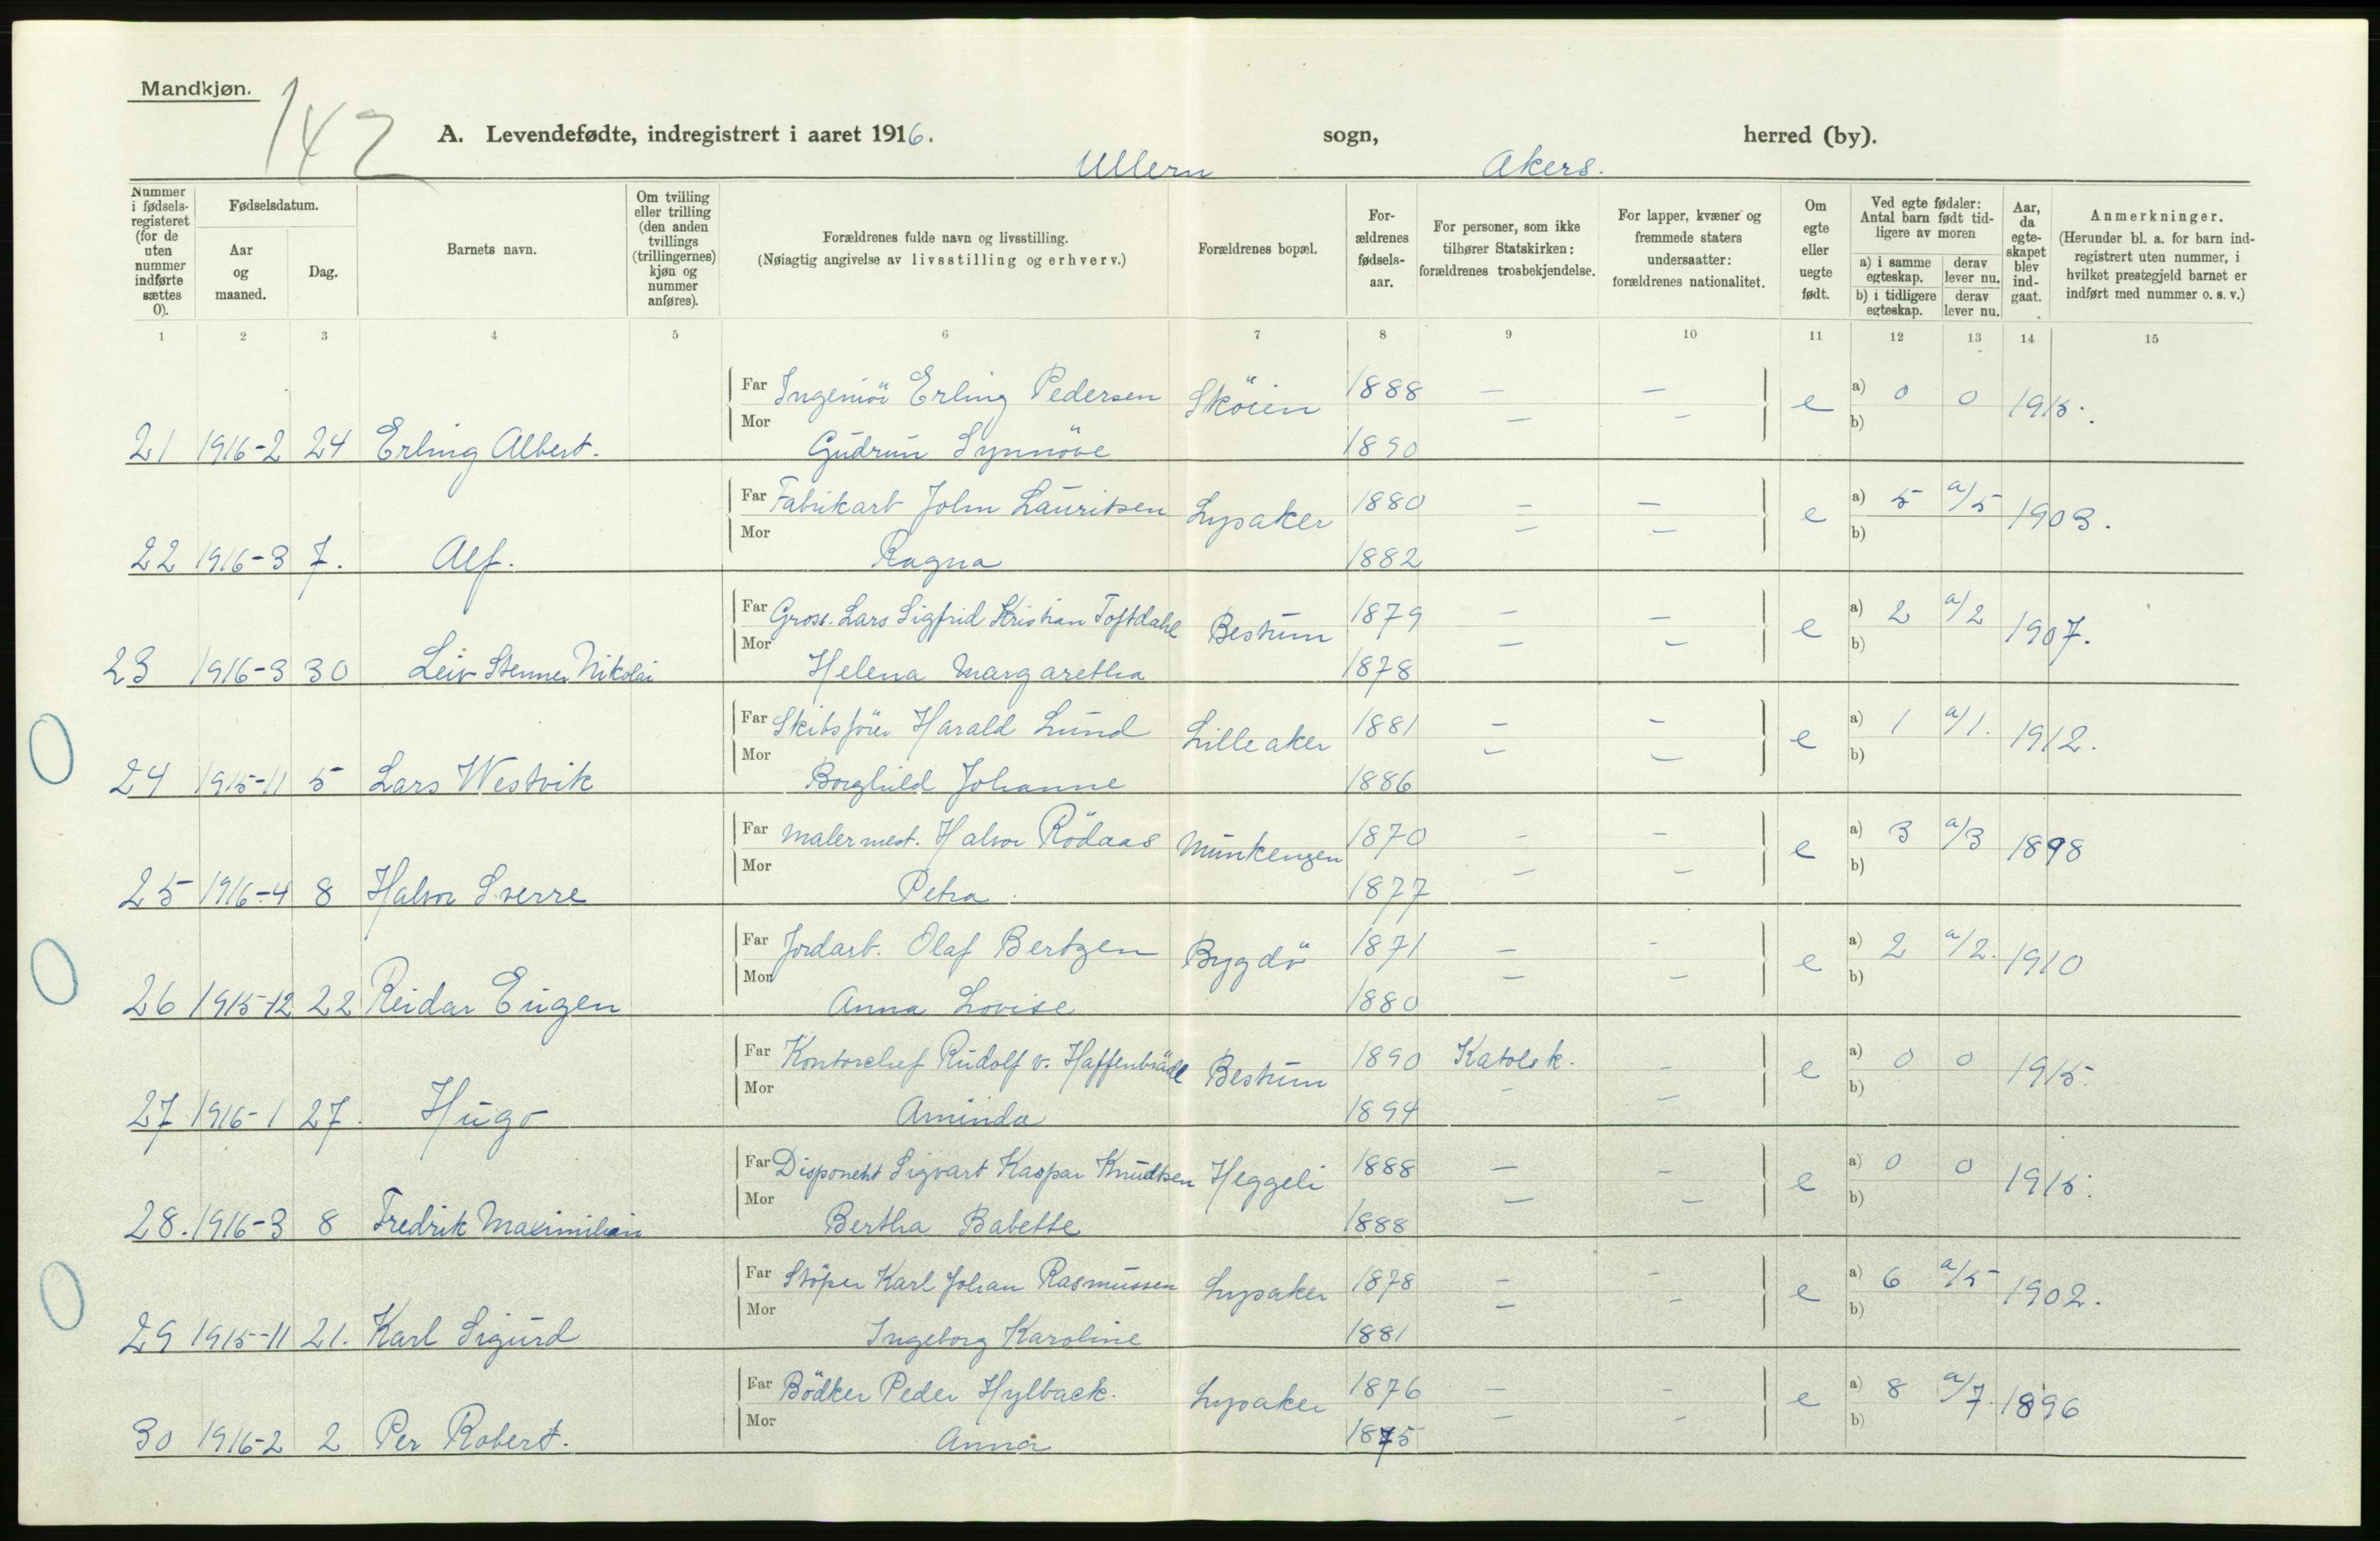 Mandkjøn.
142
A. Levendefødte, indregistrert i aaret 1916. sogn, herred (by).
Ullern Akers.
Nummer i fødsels-registeret (for de uten nummer indførte sættes 0).
Fødselsdatum.
Aar og maaned.
Dag.
Barnets navn.
Om tvilling eller trilling (den anden tvillings (trillingernes) kjøn og nummer anføres).
Forældrenes fulde navn og livsstilling.
(Nøiagtig angivelse av livsstilling og erhverv.)
Forældrenes bopæl.
For-ældrenes fødsels-aar.
For personer, som ikke tilhører Statskirken: forældrenes trosbekjendelse.
For lapper, kvæner og fremmede staters undersaatter: forældrenes nationalitet.
Om egte eller uegte født.
Ved egte fødsler: Antal barn født tid-ligere av moren
a) i samme egteskap. derav lever nu.
b) i tidligere egteskap. derav lever nu.
Aar, da egte-skapet blev ind-gaat.
Anmerkninger.
(Herunder bl. a. for barn ind-registrert uten nummer, i hvilket prestegjeld barnet er indført med nummer o. s. v.)
1 2 3 4 5 6 7 8 9 10 11 12 13 14 15
Far Ingeniör Erling Pedersen Sköien 1888 — — e a) 0 0 1915.
Mor — — b)
21 1916-2 24 Erling Albert. Gudrun Synnöve 1890
Far Fabrikarb John Lauritsen Lysaker 1880 — — e a) 5 a/5 1903.
Mor — — b)
22 1916-3 7. Alf. Ragna 1882
Far Gross. Lars Sigfrid Kristian Toftdahl Bestum 1879 — — e a) 2 a/2 1907.
Mor — — b)
23 1916-3 30 Leiv Stenner Nikolai Helena Margaretha 1878
Far Skibsförer Harald Lund Lilleaker 1881 — — e a) 1 a/1. 1912.
Mor — — b)
24 1915-11 5 Lars Westvik Borghild Johanne 1886
Far Malermest. Halvor Rödaas Munkengen 1870 — — e a) 3 a/3 1898
Mor — — b)
25 1916-4 8 Halvor Sverre Petra. 1877
Far Jordarb. Olaf Bertzen Bygdö 1871 — - e a) 2 a/2. 1910
Mor — — b)
26 1915-12 22 Reidar Eugen Anna Lovise 1880
Far Kontorchef Rudolf v. Haffenbrädl Bestum 1890 Katolsk. - e a) 0 0 1915.
Mor - — b)
27 1916-1 27. Hugo Aminda 1894
Far Disponent Sigvart Kaspar Knudtsen Heggeli 1888 — — e a) 0 0 1915.
Mor — — b)
28. 1916-3 8 Fredrik Maximilian Bertha Babette 1888
Far Stöper Karl Johan Rasmussen Lysaker 1878 — — e a) 6 a/5 1902.
Mor — — b)
29 1915-11 21. Karl Sigurd Ingeborg Karoline 1881
Far Bödker Peder Hylback. Lysaker 1876 — - e a) 8 a/7. 1896
Mor — — b)
30 1916-2 2 Per Robert. Anna 1875